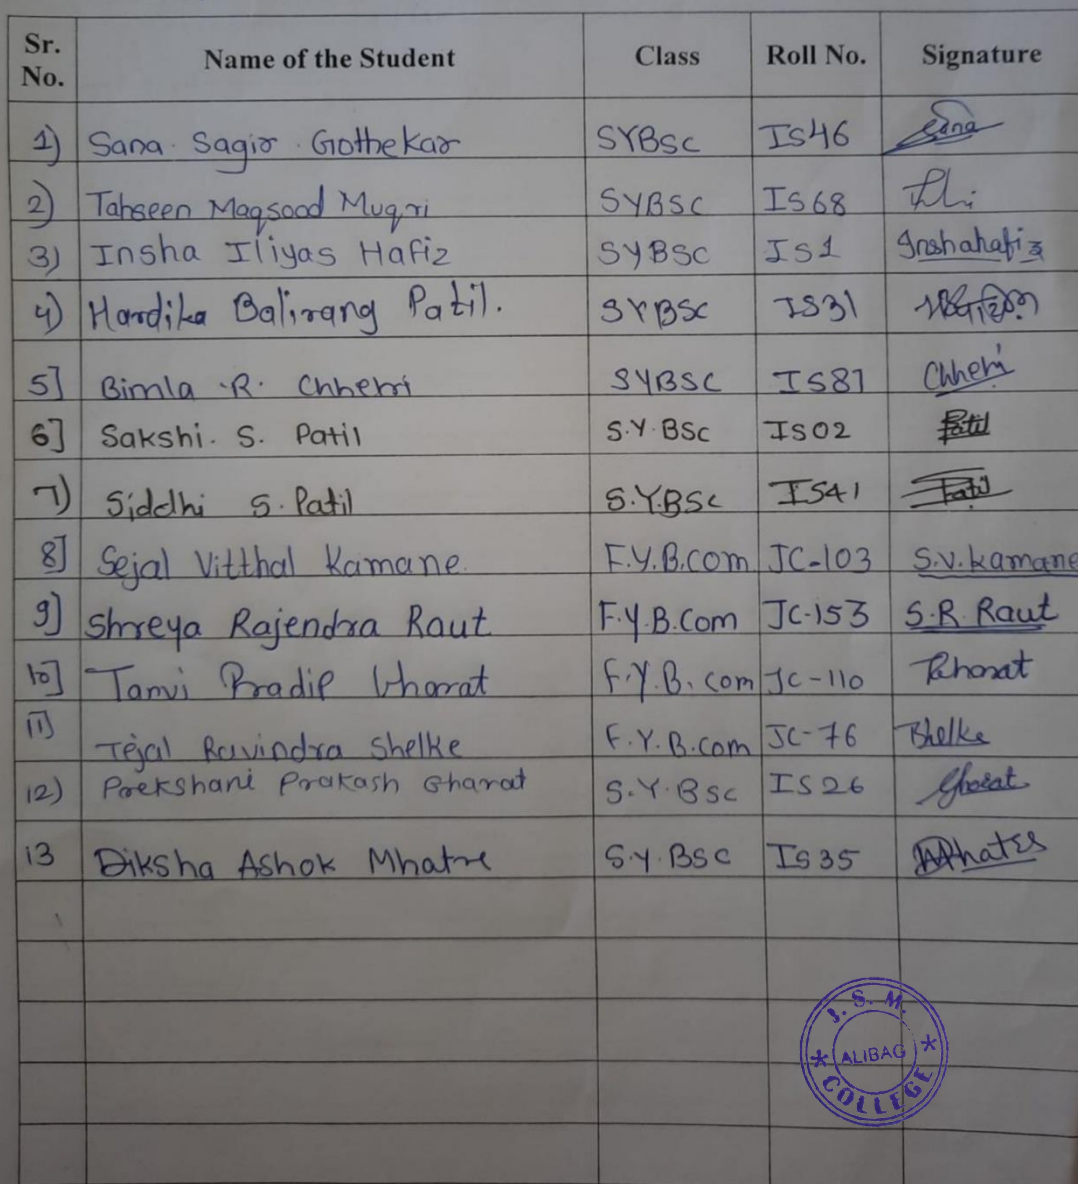 Sr. No. Name of the Student Class Roll No. Signature
1) Sana Sagir Gothekar SYBSC IS46 Sana
2) Tahseen Maqsood Muqri SYBSC IS68
3) Insha Iliyas Hafiz SYBSC IS1 Inshahafiz
4) Hardika Balirang Patil. SYBSC IS31
5] Bimla R. Chhetri SYBSC IS87 Chhetri
6] Sakshi. S. Patil S.Y.BSc IS02 Patil
7) Siddhi S. Patil S.Y.BSc IS41 Patil
8] Sejal Vitthal Kamane. F.Y.B.com JC-103 S.V.kamane
9] Shreya Rajendra Raut F.Y.B.Com JC-153 S.R. Raut
10] Tanvi Pradip Gharat F.Y.B.com JC-110
11] Tejal Ravindra Shelke F.Y.B.com JC-76
12) Prekshani Prakash Gharat S.Y.BSc IS26 Gharat
13 Diksha Ashok Mhatre S.Y.BSc IS35
J. S. M.
ALIBAG
COLLEGE